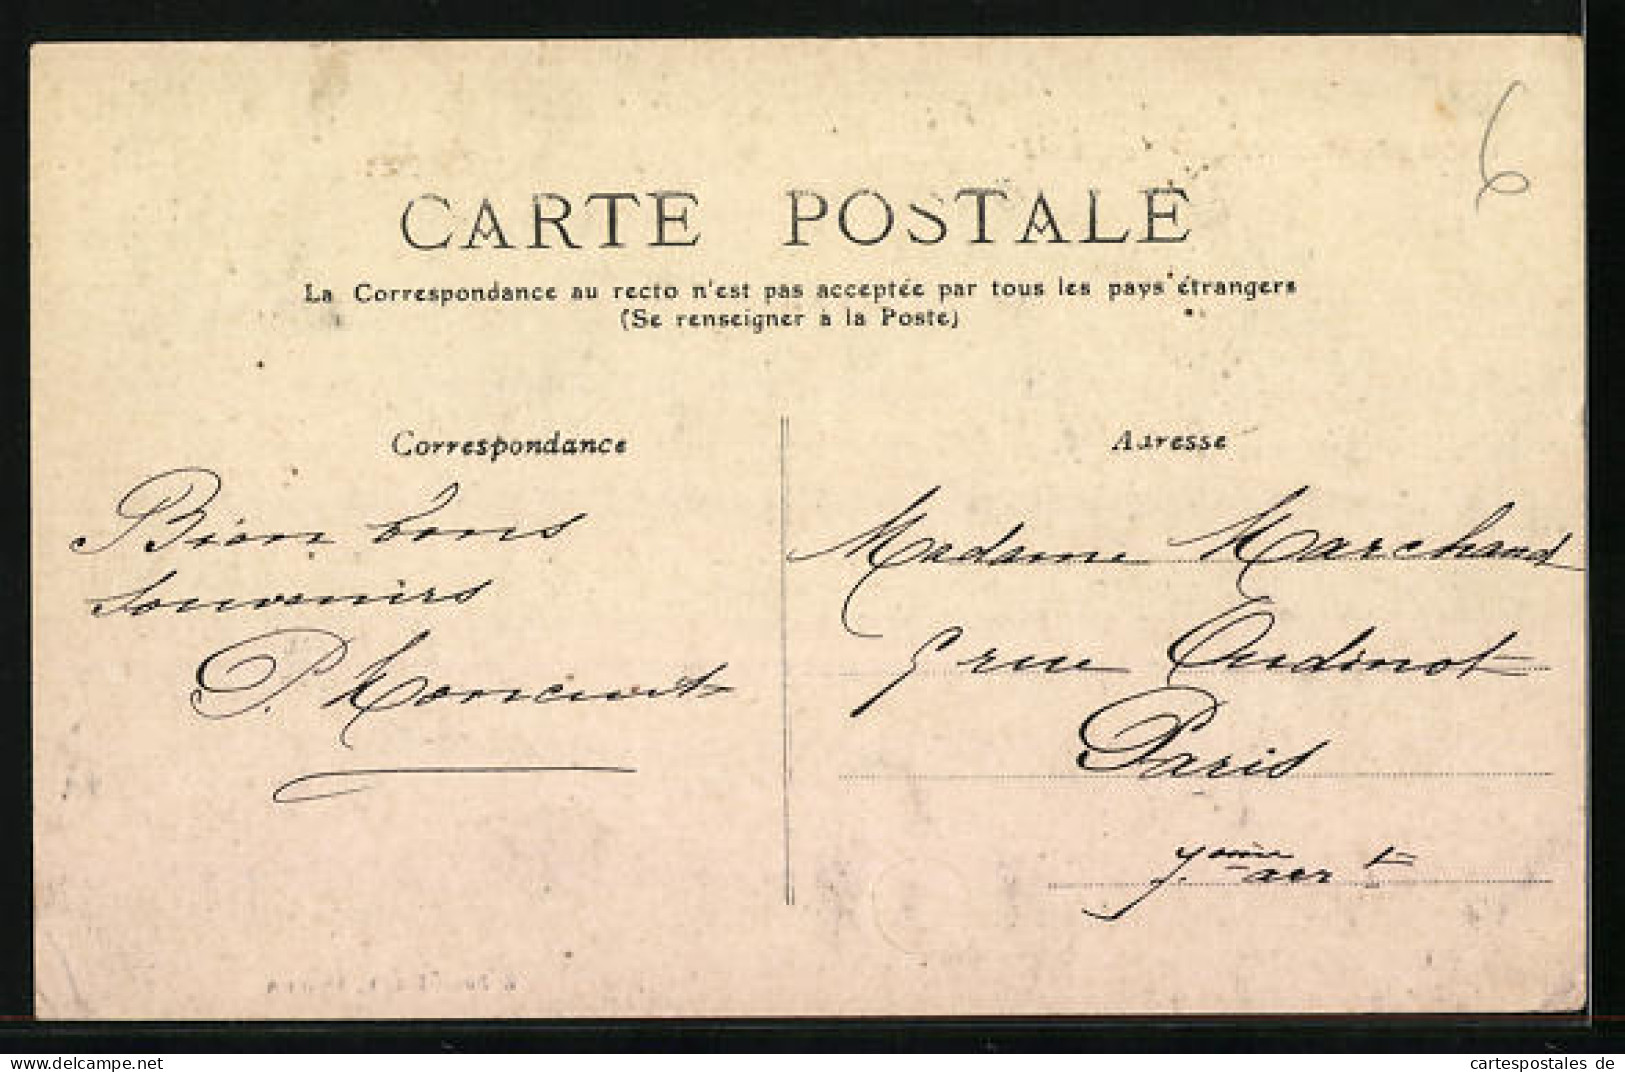 6
CARTE POSTALE
La Correspondance au recto n'est pas acceptée par tous les pays étrangers
(Se renseigner à la Poste)
Correspondance
Bien bons
souvenirs
P.
Adresse
Madame Marchand
5 rue Oudinot
Paris
7.ème arr t
delcampe.net
cartespostales de